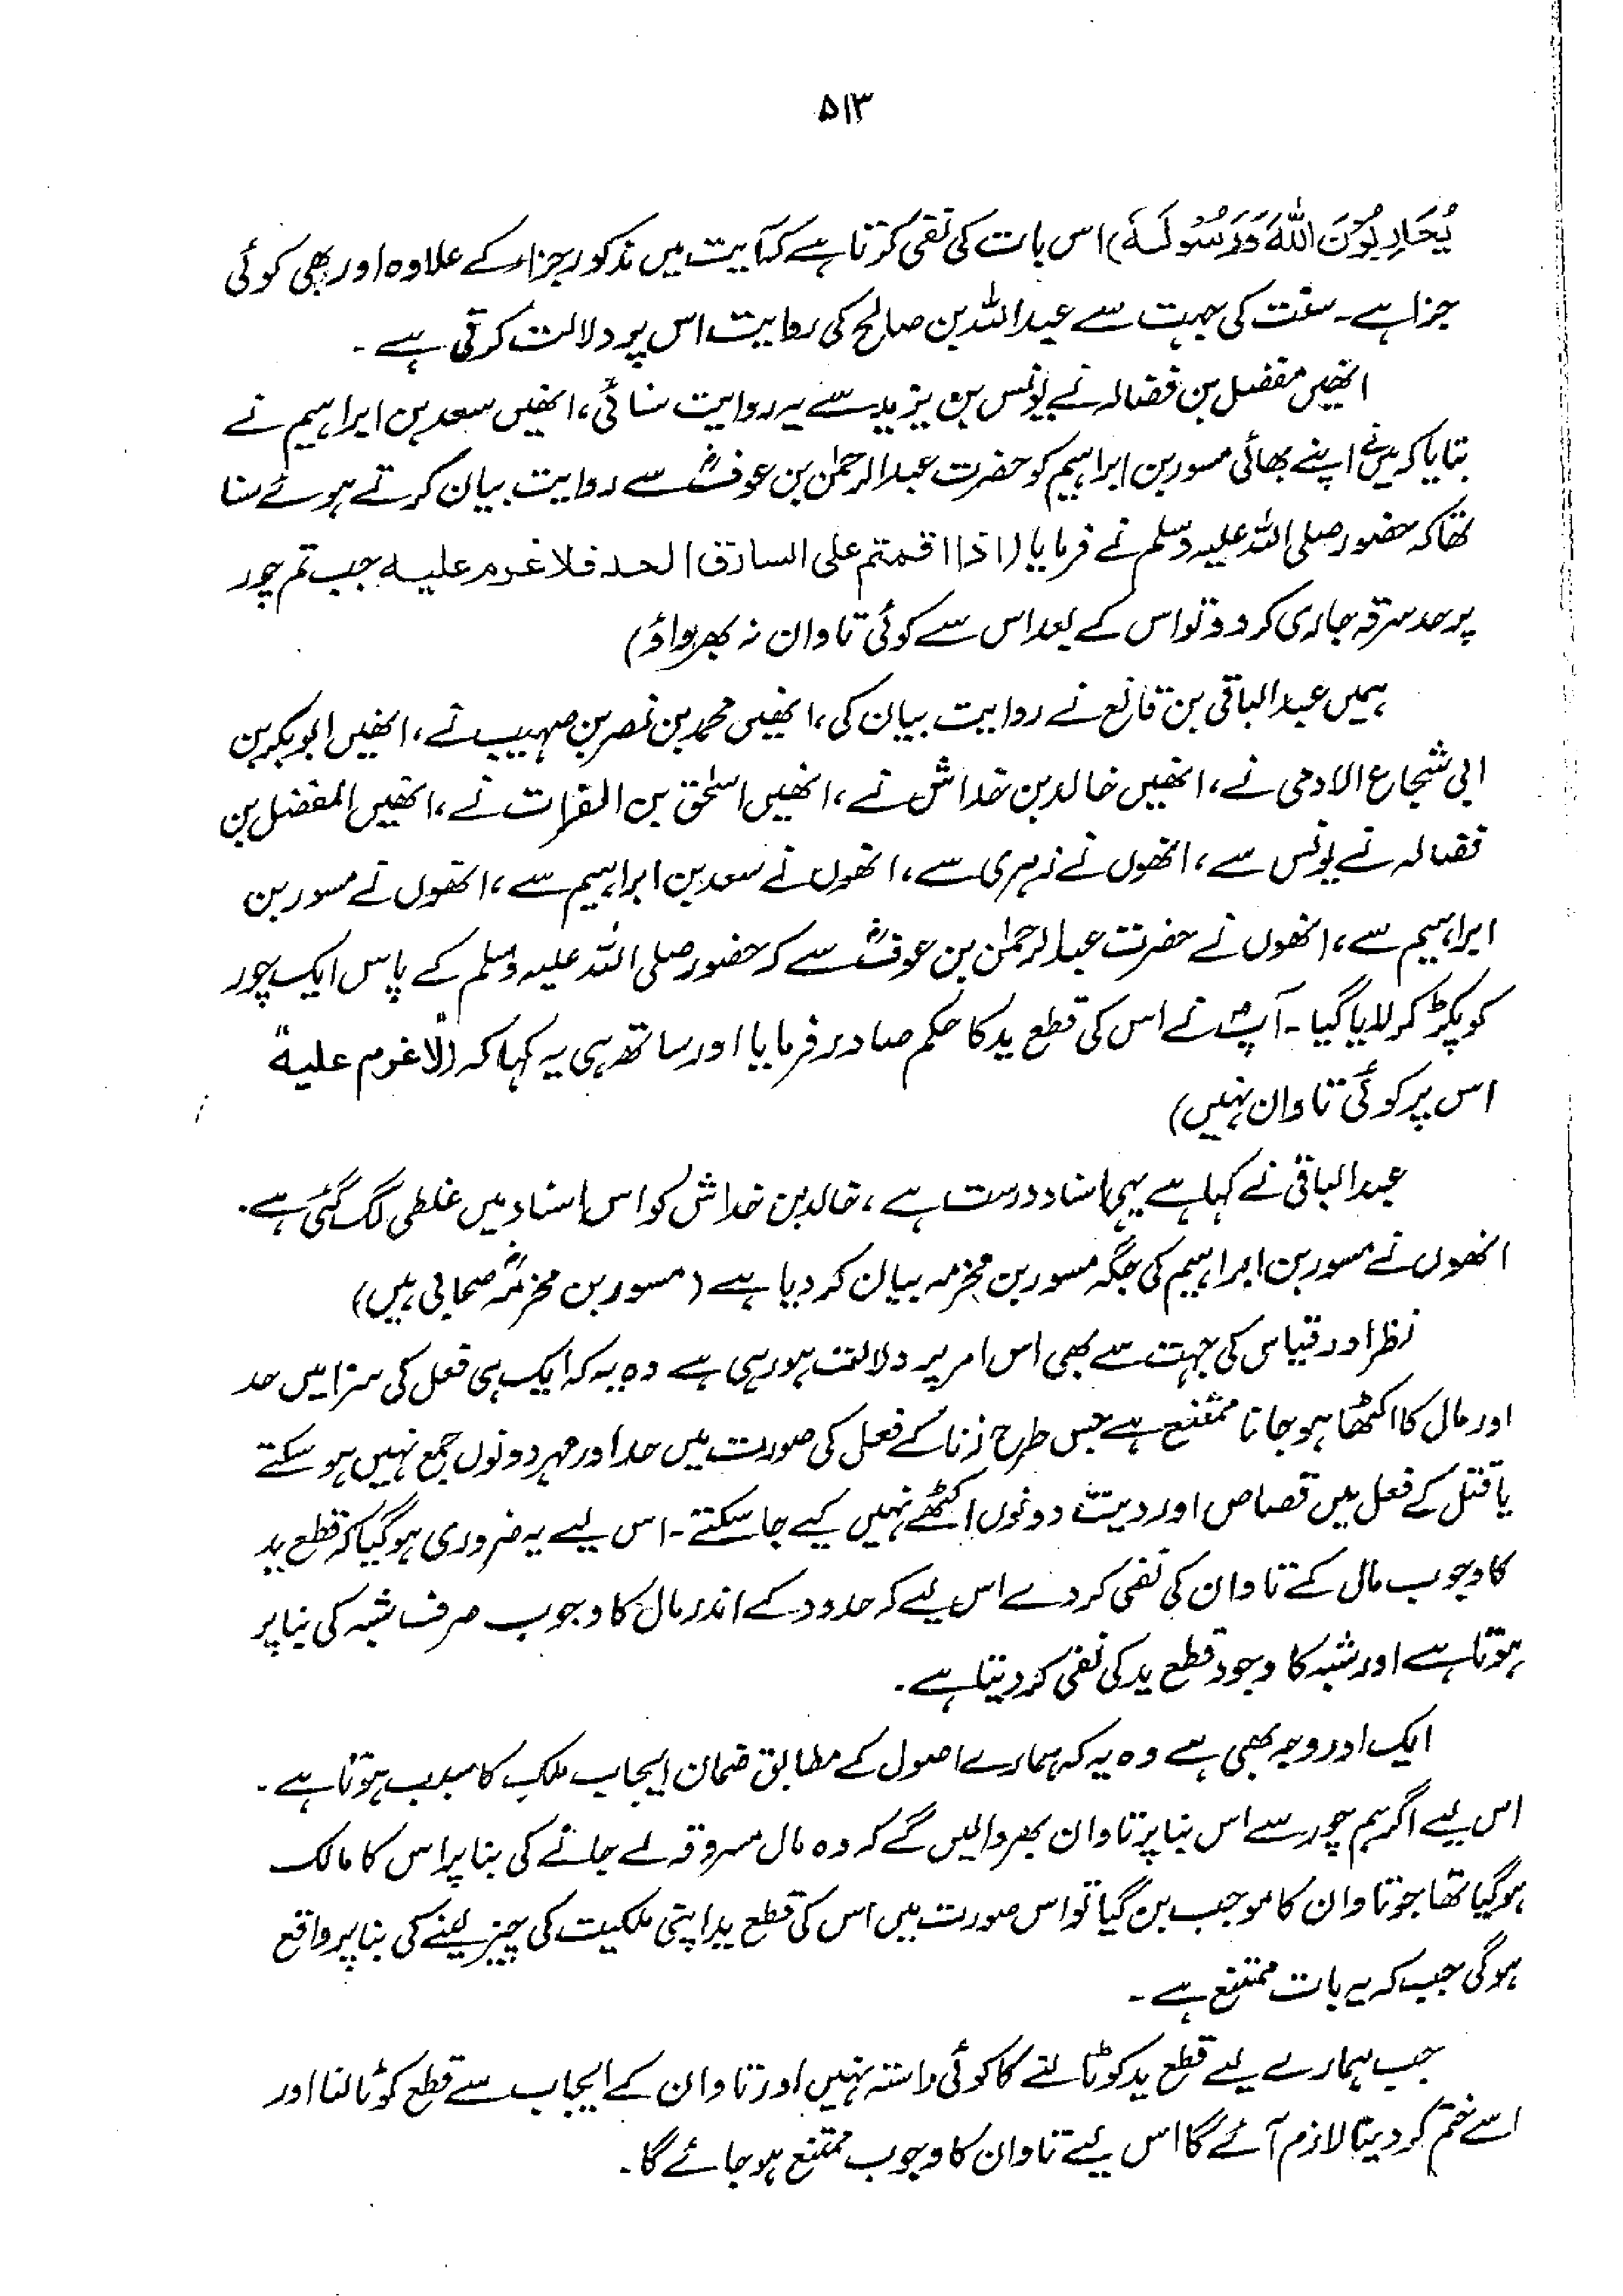 ۵۱۳
یُحَارِبُوْنَ اللّٰهَ وَرَسُوْلَهٗ) اس بات کی نفی کرتا ہے کہ آیت میں مذکور جزاء کے علاوہ اور بھی کوئی
جزا ہے۔ سنت کی جہت سے عبداللہ بن صالح کی روایت اس پر دلالت کرتی ہے۔
انھیں مفضل بن فضالہ نے یونس بن یزید سے یہ روایت سنائی، انھیں سعد بن ابراہیم نے
بتایا کہ میں نے اپنے بھائی مسور بن ابراہیم کو حضرت عبدالرحمٰن بن عوفؓ سے روایت بیان کرتے ہوئے سنا
تھا کہ حضور صلی اللہ علیہ وسلم نے فرمایا (اذا اقمتم علی السارق الحد فلا غرم علیہ جب تم چور
پر حد سرقہ جاری کر دو تو اس کے بعد اس سے کوئی تاوان نہ بھرواؤ)
ہمیں عبدالباقی بن قانع نے روایت بیان کی، انھیں محمد بن نصر بن صہیب نے، انھیں ابوبکر بن
ابی شجاع الادمی نے، انھیں خالد بن خداش نے، انھیں اسحٰق بن الفرات نے، انھیں المفضل بن
فضالہ نے یونس سے، انھوں نے زہری سے، انھوں نے سعد بن ابراہیم سے، انھوں نے مسور بن
ابراہیم سے، انھوں نے حضرت عبدالرحمٰن بن عوفؓ سے کہ حضور صلی اللہ علیہ وسلم کے پاس ایک چور
کو پکڑ کر لایا گیا۔ آپؐ نے اس کی قطع ید کا حکم صادر فرمایا اور ساتھ ہی یہ کہا کہ (لا غرم علیہ
اس پر کوئی تاوان نہیں)
عبدالباقی نے کہا ہے یہی اسناد درست ہے، خالد بن خداش کو اس اسناد میں غلطی لگ گئی ہے۔
انھوں نے مسور بن ابراہیم کی جگہ مسور بن مخرمہ بیان کر دیا ہے (مسور بن مخرمہؓ صحابی ہیں)
نظر اور قیاس کی جہت سے بھی اس امر پر دلالت ہو رہی ہے وہ یہ کہ ایک ہی فعل کی سزا میں حد
اور مال کا اکٹھا ہو جانا ممتنع ہے جس طرح زنا کے فعل کی صورت میں حد اور مہر دونوں جمع نہیں ہو سکتے
یا قتل کے فعل میں قصاص اور دیت دونوں اکٹھے نہیں کیے جا سکتے۔ اس لیے یہ ضروری ہو گیا کہ قطع ید
کا وجوب مال کے تاوان کی نفی کر دے اس لیے کہ حدود کے اندر مال کا وجوب صرف شبہ کی بنا پر
ہوتا ہے اور شبہ کا وجود قطع ید کی نفی کر دیتا ہے۔
ایک اور وجہ بھی ہے وہ یہ کہ ہمارے اصول کے مطابق ضمان ایجاب ملک کا سبب ہوتا ہے۔
اس لیے اگر ہم چور سے اس بنا پر تاوان بھروالیں گے کہ وہ مال مسروقہ لے جانے کی بنا پر اس کا مالک
ہو گیا تھا جو تاوان کا موجب بن گیا تو اس صورت میں اس کی قطع ید اپنی ملکیت کی چیز لینے کی بنا پر واقع
ہو گی جب کہ یہ بات ممتنع ہے۔
جب ہمارے لیے قطع ید کو ٹالنے کا کوئی راستہ نہیں اور تاوان کے ایجاب سے قطع کو ٹالنا اور
اسے ختم کر دینا لازم آئے گا اس لیے تاوان کا وجوب ممتنع ہو جائے گا۔